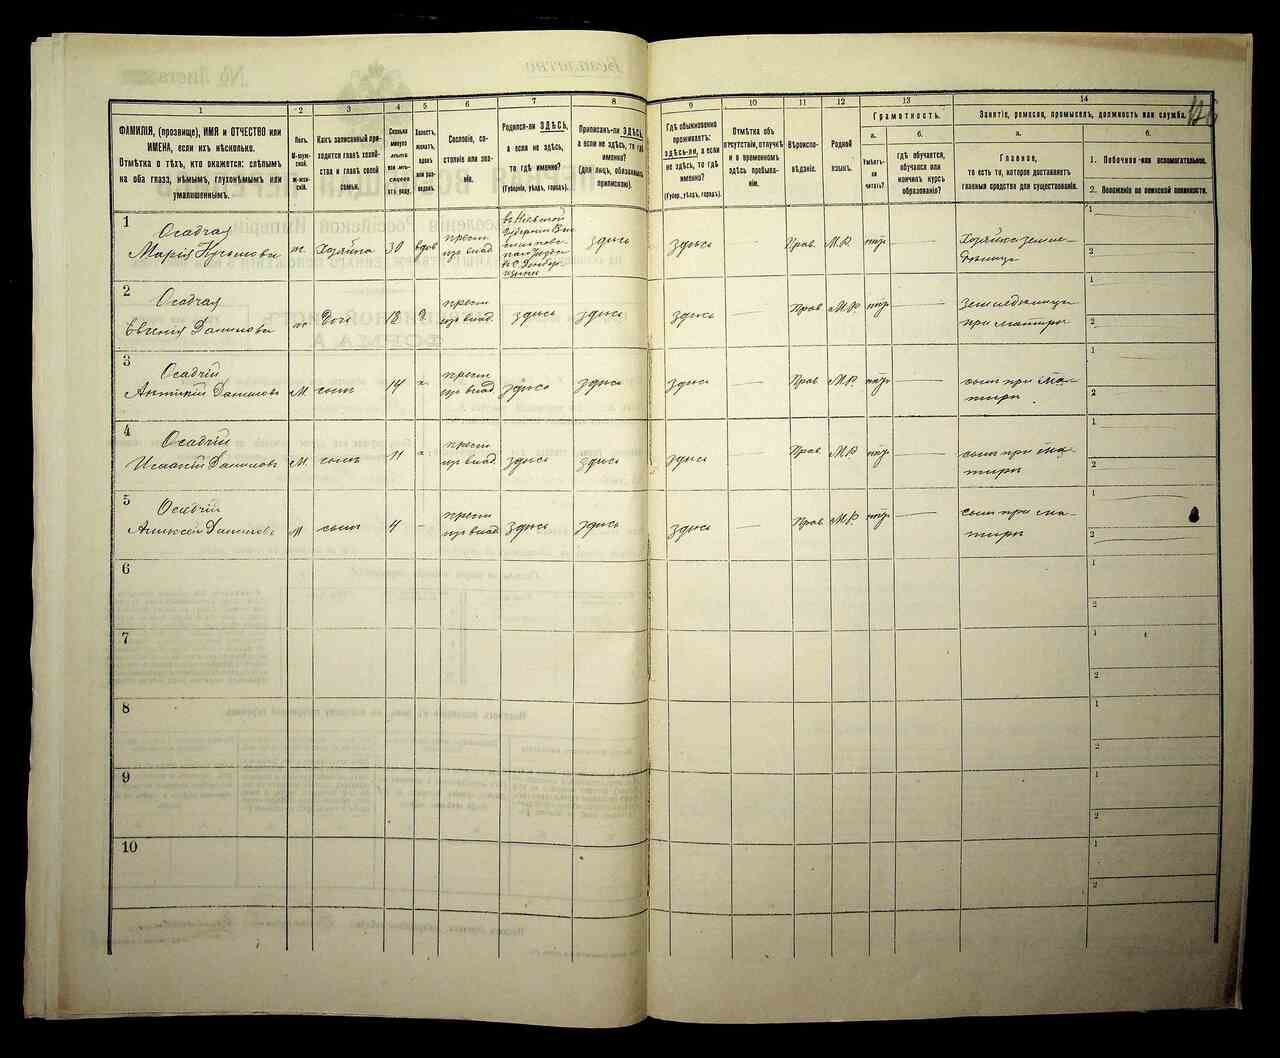 126
1
2
3
4
5
6
7
8
9
10
11
12
13
14
ФАМИЛІЯ, (прозвище), ИМЯ и ОТЧЕСТВО или
ИМЕНА, если ихъ нѣсколько.
Отмѣтка о тѣхъ, кто окажется: слѣпымъ
на оба глаза, нѣмымъ, глухонѣмымъ или
умалишеннымъ.
Полъ.
М-мужской.
Ж-женскій.
Какъ записанный приходится главѣ хозяйства и главѣ своей
семьи.
Сколько
минуло
лѣтъ
или мѣсяцевъ
отъ роду.
Холостъ,
женатъ,
вдовъ
или разведенъ.
Сословіе, состояніе или званіе.
Родился-ли ЗДѢСЬ,
а если не здѣсь,
то гдѣ именно?
(Губернія, уѣздъ, городъ).
Приписанъ-ли ЗДѢСЬ,
а если не здѣсь, то гдѣ
именно?
(для лицъ, обязанныхъ
припискою).
Гдѣ обыкновенно
проживаетъ:
здѣсь-ли, а если
не здѣсь, то гдѣ
именно?
(Губер., уѣздъ, городъ).
Отмѣтка объ
отсутствіи, отлучкѣ
и о временномъ
здѣсь пребываніи.
Вѣроисповѣданіе.
Родной
языкъ.
Грамотность.
а.
б.
Умѣетъ-ли
читать?
гдѣ обучается,
обучался или
кончилъ курсъ
образованія?
Занятіе, ремесло, промыселъ, должность или служба.
а.
б.
Главное,
то есть то, которое доставляетъ
главныя средства для существованія.
1. Побочное или вспомогательное.
2. Положеніе по воинской повинности.
1
Осадчая
Марія
ж. Хозяйка 30 вдов.
крест.
изъ влад.
здѣсь здѣсь Прав. М.Р. нѣт
Хозяйка земле-
дѣлица
1
2
2
Осадчая
Евгенія Данилова
ж Дочь 18
крест
изъ влад.
здѣсь здѣсь здѣсь — Прав. М.Р. нѣт —
земледѣлица
при матери
1
2
3
Осадчій
Данилов
М. сынъ 14 х.
крест
изъ влад.
здѣсь здѣсь здѣсь — Прав М.Р. нѣт —
сынъ при ма-
тери
1
2
4
Осадчій
Исаакій Данилов
М. сынъ 11 х.
крест
изъ влад.
здѣсь здѣсь здѣсь — Прав. М.Р. нѣт —
сынъ при ма-
тери
1
2
5
Осадчій
Алексѣй Данилов
М сынъ 4 -
крест
изъ влад
здѣсь здѣсь здѣсь — Прав. М.Р. нѣт —
сынъ при ма-
тери
1
2
6
1
2
7
1
2
8
1
2
9
1
2
10
1
2